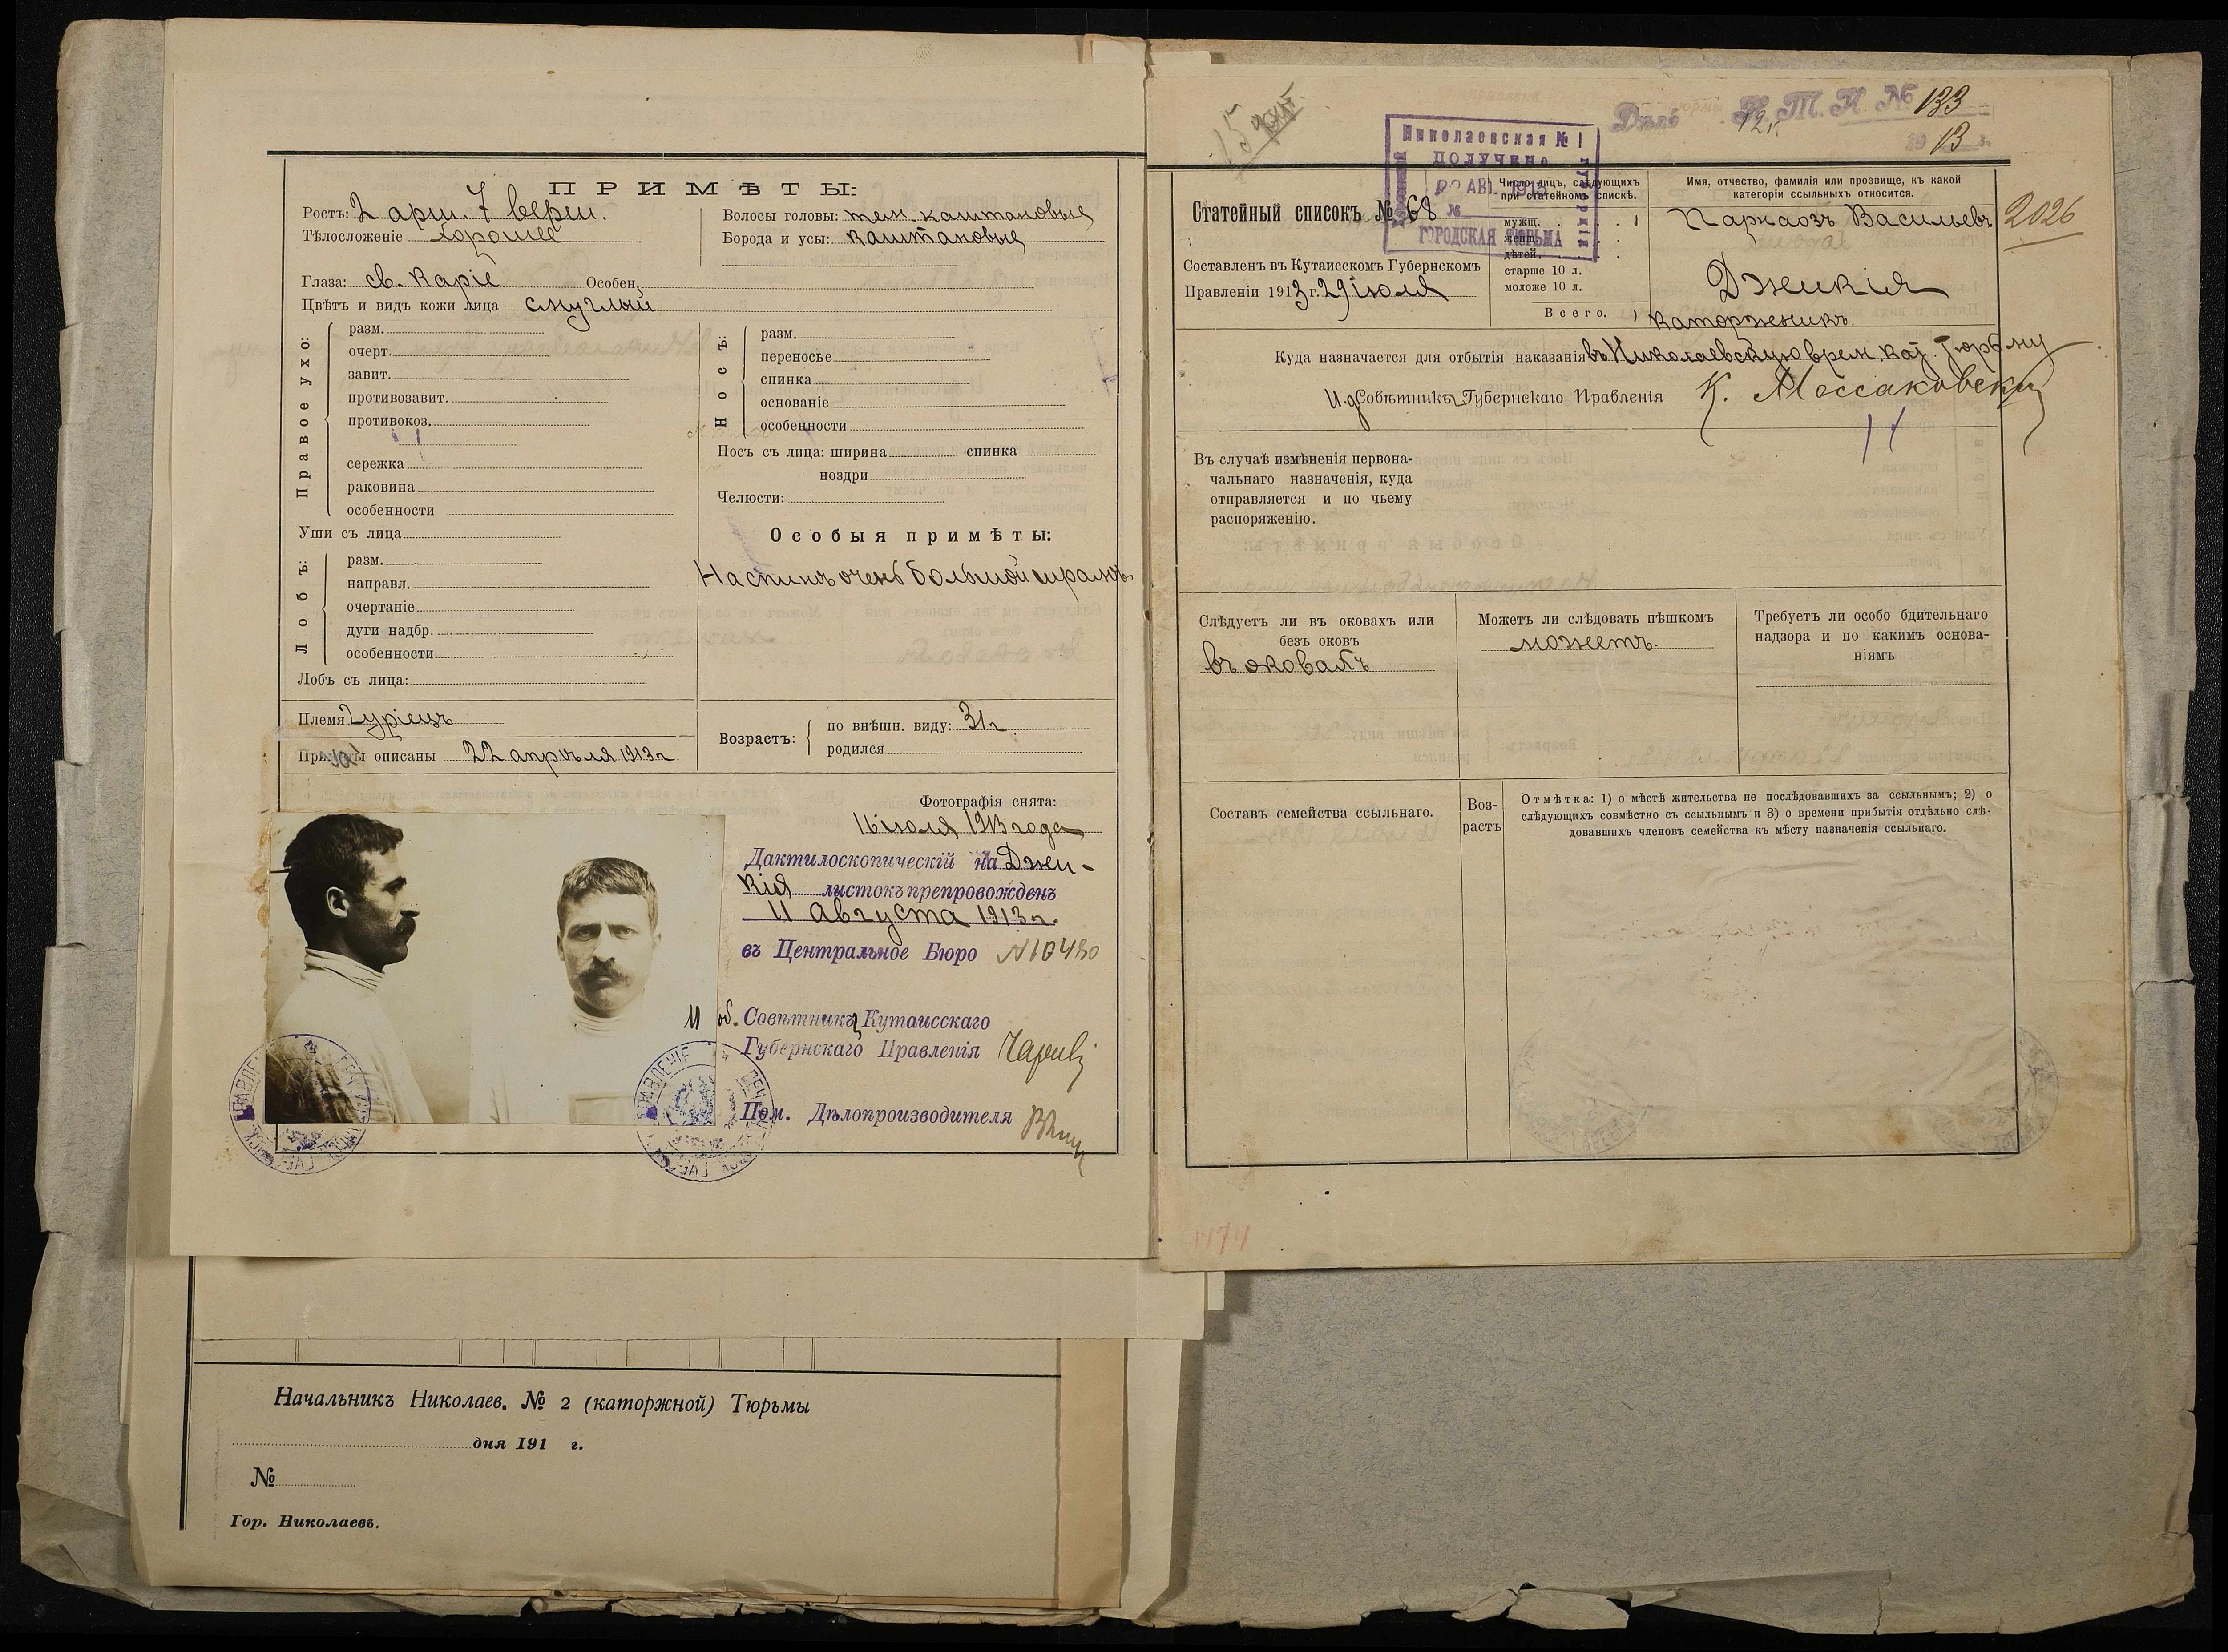 ПРИМѢТЫ:
Ростъ: 2 арш. 7 верш.
Тѣлосложеніе хорошее
Волосы головы: тем. каштановые
Борода и усы: каштановые
Глаза: св. каріе Особен.
Цвѣтъ и видъ кожи лица смуглый
Правое ухо:
разм.
очерт.
завит.
противозавит.
противокоз.
сережка
раковина
особенности
Уши съ лица
Лобъ:
разм.
направл.
очертаніе
дуги надбр.
особенности
Лобъ съ лица:
Носъ:
разм.
переносье
спинка
основаніе
особенности
Носъ съ лица: ширина спинка
ноздри
Челюсти:
Особыя примѣты:
На спинѣ очень большой шрамъ.
Племя Гуріецъ
Примѣты описаны 22 апрѣля 1913 г.
Возрастъ:
по внѣшн. виду: 31 г.
родился
Фотографія снята:
16 іюля 1913 года
Дактилоскопическій на Джи-
кія листокъ препровожденъ
11 Августа 1913 г.
въ Центральное Бюро N 10430
И об. Совѣтника Кутаисскаго
Губернскаго Правленія
Пом. Дѣлопроизводителя
Начальникъ Николаев. № 2 (каторжной) Тюрьмы
дня 191 г.
№
Гор. Николаевъ.
Дѣло Н. Т. К. № 133
1913 г.
Николаевская № 1
ПОЛУЧЕНО
АВГ. 1913
№
ГОРОДСКАЯ ТЮРЬМА
Статейный списокъ № 68
Составленъ въ Кутаисскомъ Губернскомъ
Правленіи 1913 г. 29 іюля
Число лицъ, слѣдующихъ
при статейномъ спискѣ.
мужш. 1
женш.
дѣтей.
старше 10 л.
моложе 10 л.
Всего. 1
Имя, отчество, фамилія или прозвище, къ какой
категоріи ссыльныхъ относится.
Парнаозъ Васильевъ
2026
Джикія
каторжникъ.
Куда назначается для отбытія наказанія въ Николаевскую врем. кат. тюрьму
И.д. Совѣтника Губернскаго Правленія К. Массаковскій
Въ случаѣ измѣненія первона-
чальнаго назначенія, куда
отправляется и по чьему
распоряженію.
Слѣдуетъ ли въ оковахъ или
безъ оковъ
въ оковахъ
Можетъ ли слѣдовать пѣшкомъ
можетъ.
Требуетъ ли особо бдительнаго
надзора и по какимъ основа-
ніямъ
Составъ семейства ссыльнаго.
Воз-
растъ
Отмѣтка: 1) о мѣстѣ жительства не послѣдовавшихъ за ссыльнымъ; 2) о
слѣдующихъ совмѣстно съ ссыльнымъ и 3) о времени прибытія отдѣльно слѣ-
довавшихъ членовъ семейства къ мѣсту назначенія ссыльнаго.